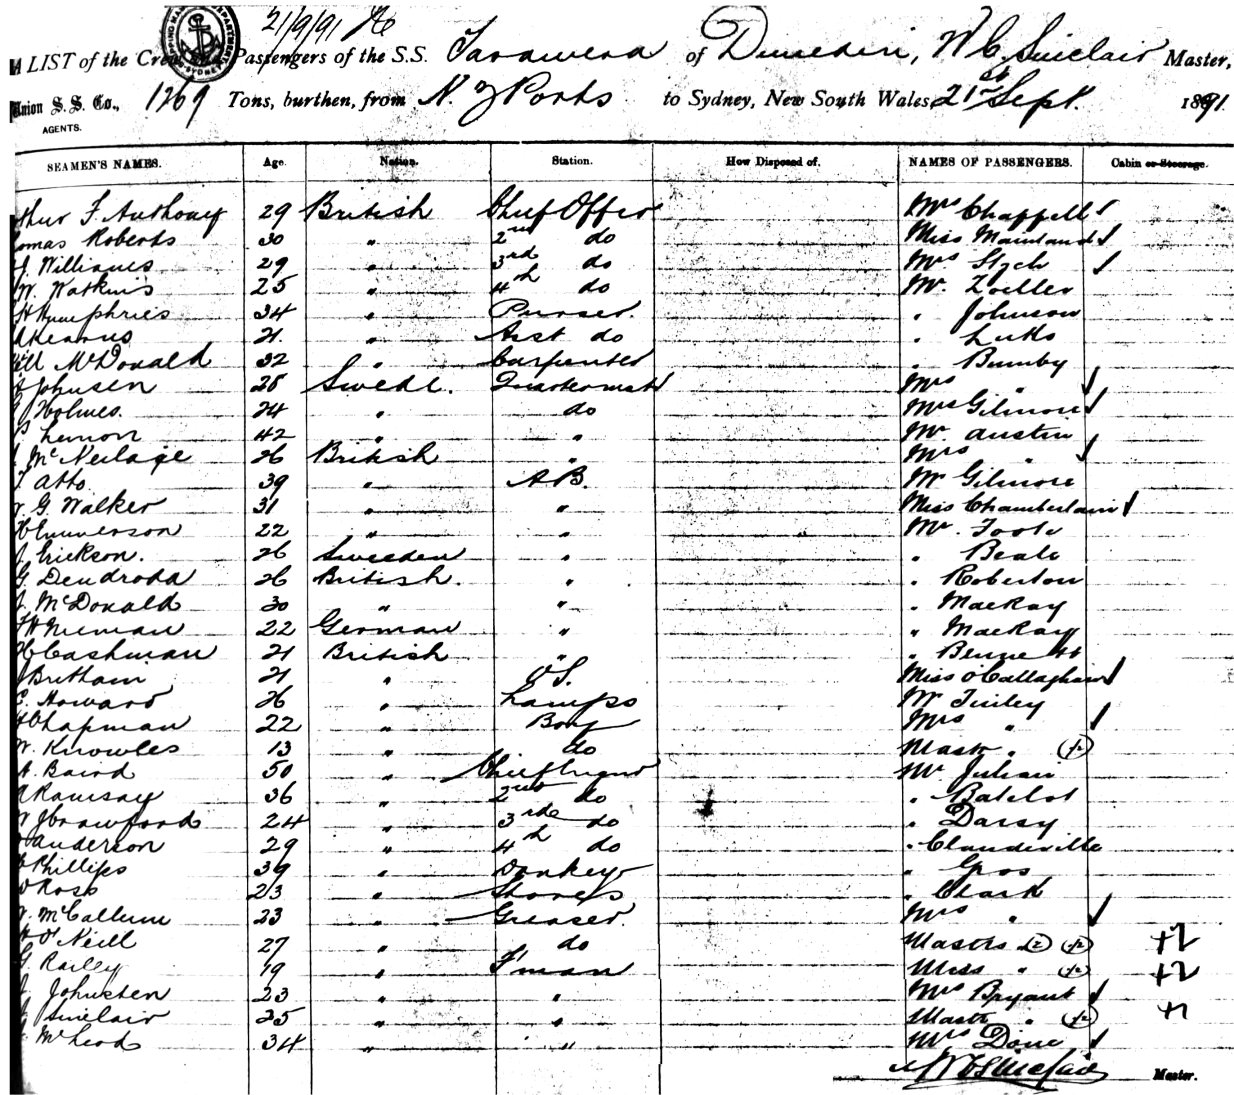 21/9/91
A LIST of the Crew and Passengers of the S.S. Tarawera of Dunedin, W C Sinclair Master,
Union S. S. Co., 1269 Tons, burthen, from N. Z Ports to Sydney, New South Wales, 21st Sept. 1891.
AGENTS.
SEAMEN'S NAMES. Age. Nation. Station. How Disposed of. NAMES OF PASSENGERS. Cabin or Steerage.
thur F. Anthony 29 British Chief Officr Mrs Chappell ✓
omas Roberts 30 " 2nd do Miss Mainland ✓
J. Williams 29 " 3rd do Mrs Stych ✓
W. Watkins 25 " 4th do Mr. Zoeller
H Humphries 34 " Purser. " Johnson
Kearns 21. " Asst do " Luks
McDonald 32 " Carpenter " Bumby
Johnsen 28 Swede. Quartermstr Mrs " ✓
Holmes. 24 " do Mrs Gilmore ✓
Lennon 42 " " Mr. Austin
McNeilage 26 British " Mrs " ✓
Atto 39 " A.B. Mr Gilmore
G. Walker 31 " " Miss Chamberlain ✓
Gunnerson 22 " " Mr. Foote
J. Erickson. 26 Sweeden " " Beale
G Dendroda 26 British. " " Roberton
J. McDonald 30 " " " MacKay
Nieman 22 German " " MacKay
H Cashman 21 British " " Bennett
J Brittain 21 " O S. Miss O'Callaghan ✓
C. Howard 26 " Lamps Mr Tinley
H Chapman 22 " Boy Mrs " ✓
W. Knowles 13 " do Mastr " (1/2)
A. Baird 50 " Chief Enginr Mr Julian
Ramsay 36 " 2nd do " Batelot
W J Crawford 24 " 3rd do " Darsy
Anderson 29 " 4th do " Claudeville
Phillips 39 " Donkey " Gros
D Ross 23 " Storeks " Clark
McCallum 23 " Greaser. Mrs " ✓
O'Neill 27 " do Masters (2) (1/2) +2
G. Railey 19 " F'man Miss " (1/2) +2
J. Johnsten 23 " " Mrs Bryant ✓
Sinclair 25 " " Mastr " (1/2)
McLeod 34 " " Mrs Done ✓
W C Sinclair Master.